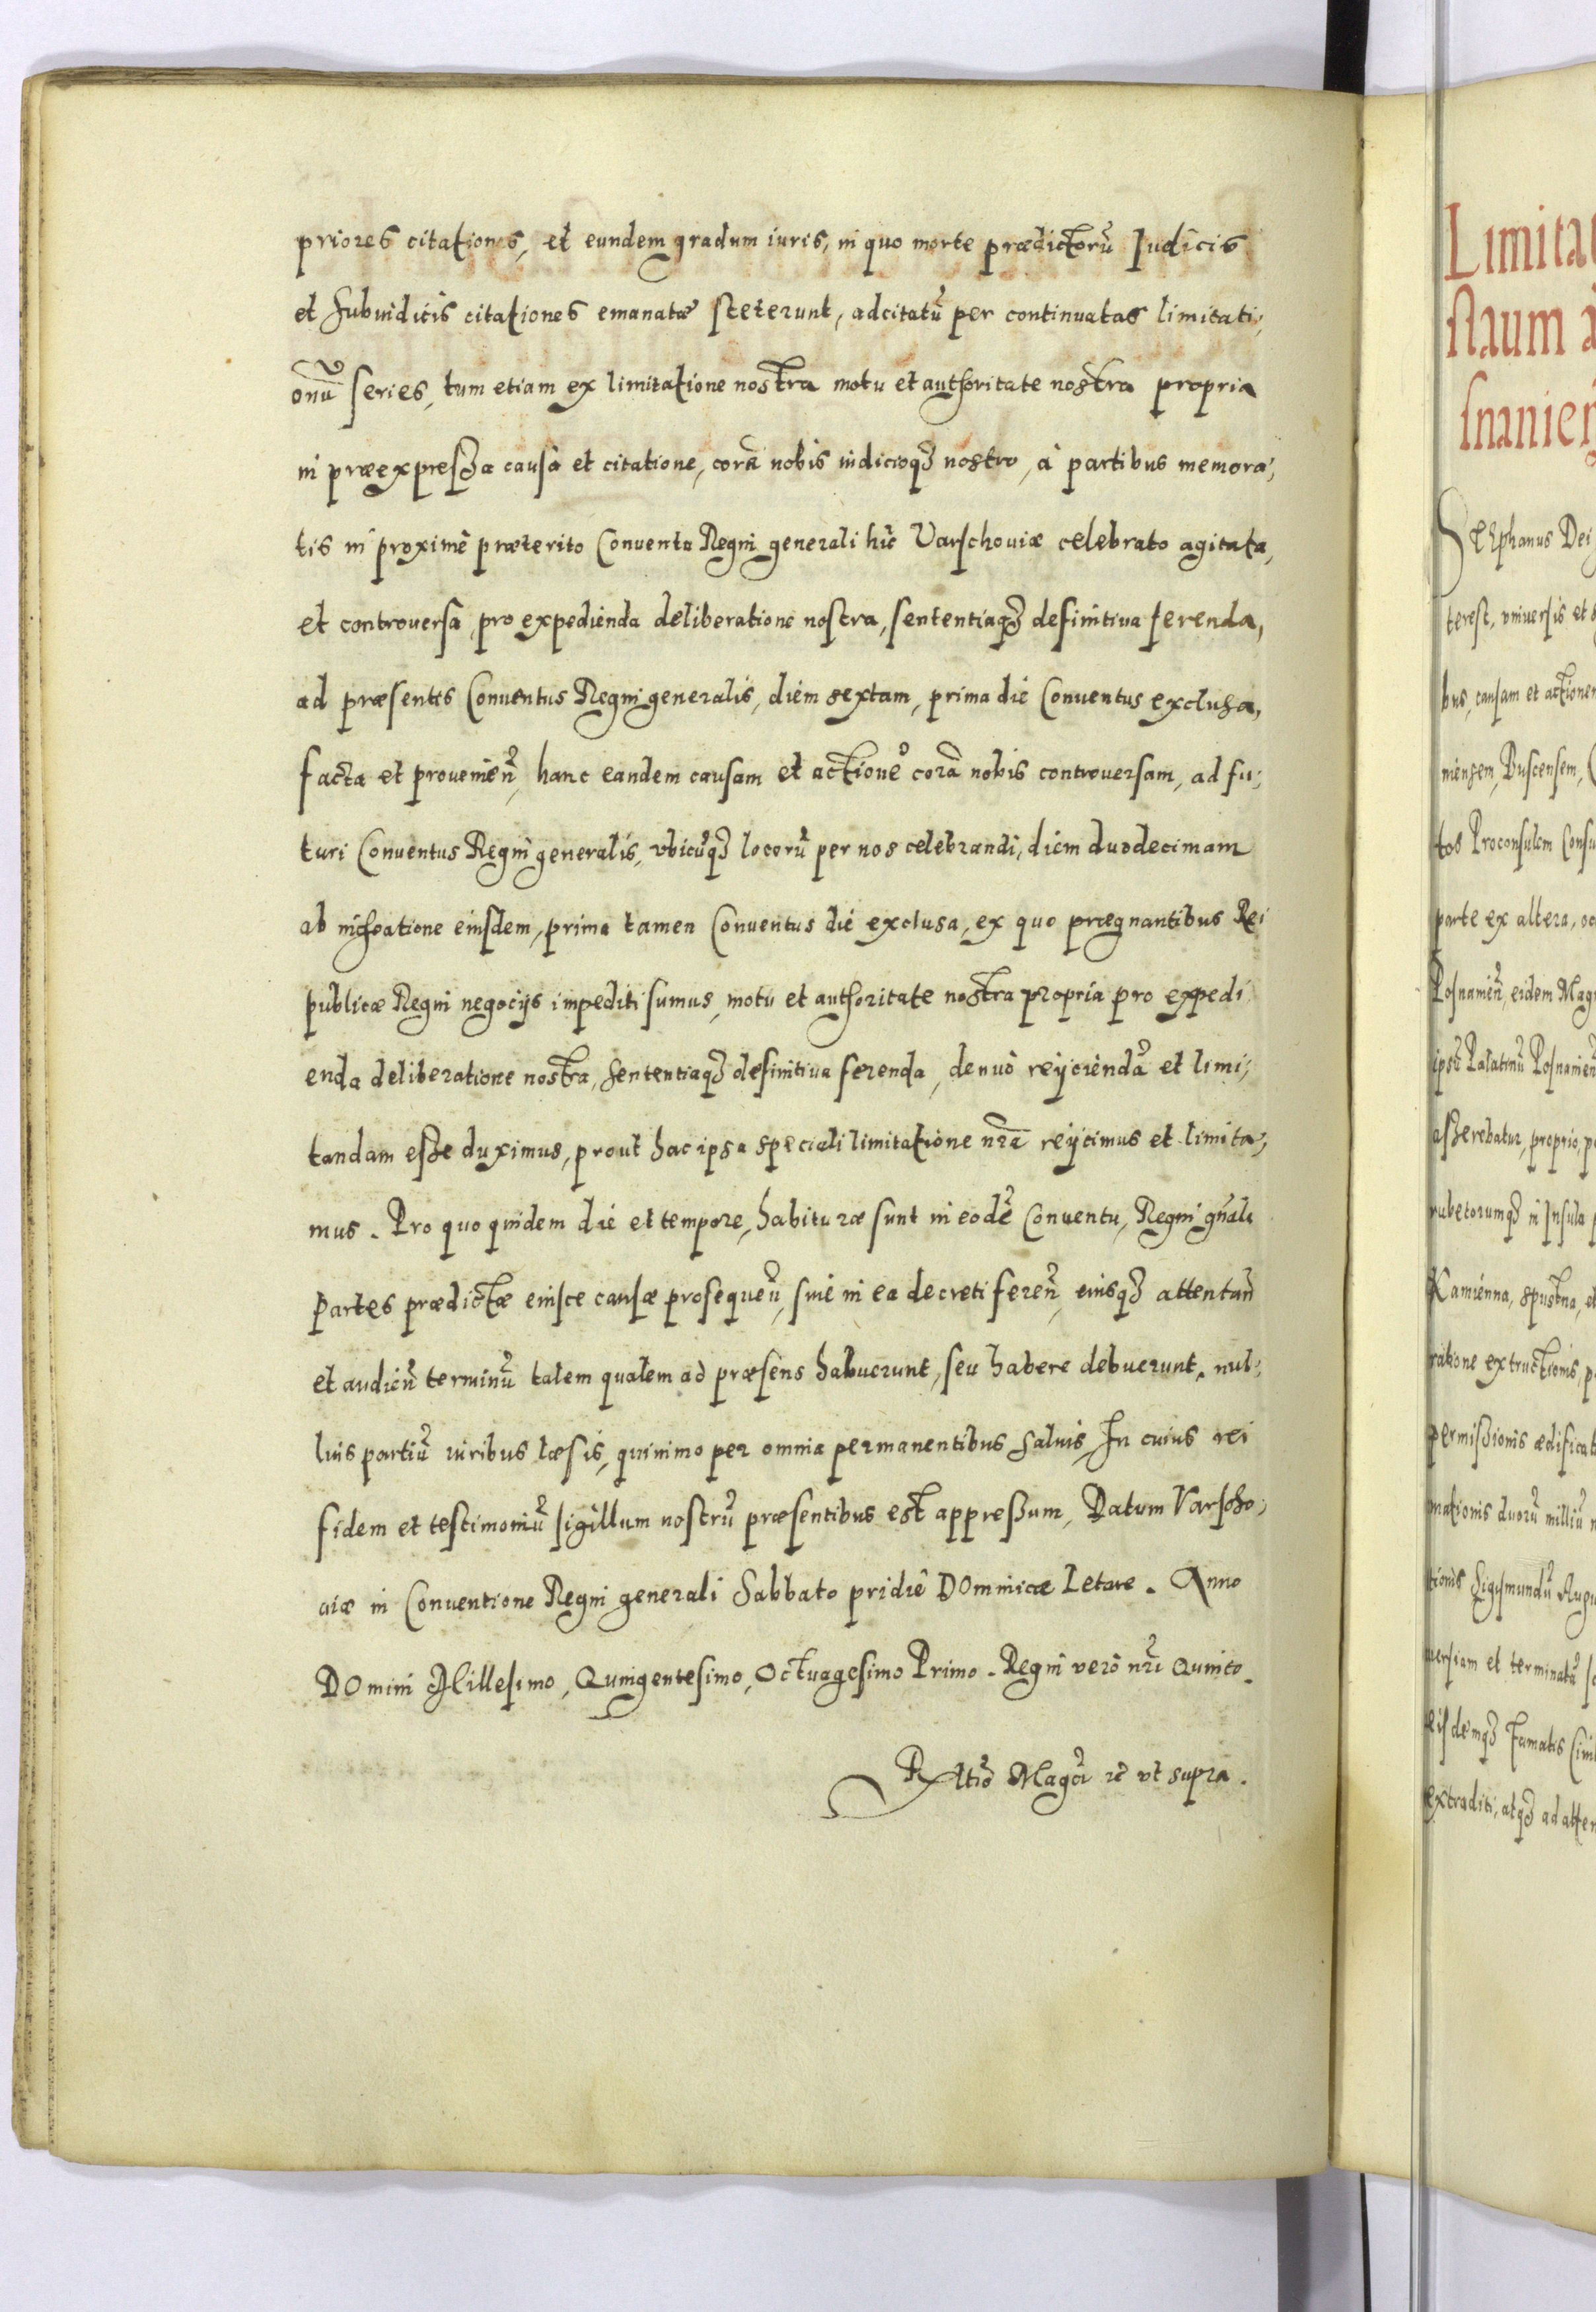 priores citationes, et eundem gradum iuris, in quo morte prædictorũ Iudicis
et Subiudicis citationes emanatæ steterunt, adcitatũ per continuatas limitati,
onũ series, tum etiam ex limitatione nostra motu et authoritate nostra propria
in præexpressa causa et citatione, corã nobis iudicioqꝫ nostro, à partibus memora,
tis in proximè præterito Conuentu Regni generali hic Varschouiæ celebrato agitata,
et controuersa, pro expedienda deliberatione nostra, sententiaqꝫ definitiua ferenda,
ad præsentis Conuentus Regni generalis, diem sextam, prima die Conuentus exclusa,
facta et prouenieñ, hanc eandem causam et actionẽ corã nobis controuersam, ad fu,
turi Conuentus Regni generalis, vbicũqꝫ locorũ per nos celebrandi, diem duodecimam
ab inchoatione eiusdem, prima tamen Conuentus die exclusa, ex quo prægnantibus Rei
publicæ Regni negocijs impediti sumus, motu et authoritate nostra propria pro expedi
enda deliberatione nostra, sententiaqꝫ definitiua ferenda, denuò reijciendã et limi,
tandam esse duximus, prout hac ipsa speciali limitatione nrã reijcimus et limita,
mus. Pro quo quidem die et tempore, habituræ sunt in eodẽ Conuentu, Regni gñali
Partes prædictæ eiusce causæ prosequeñ, siue in ea decreti fereñ, eiusqꝫ attentañ
et audieñ terminũ talem qualem ad præsens habuerunt, seu habere debuerunt. nul,
lius partiũ iuribus læsis, quinimo per omnia permanentibus saluis, In cuius rei
fidem et testimoniũ sigillum nostrũ præsentibus est appressum, Datum Varscho,
uiæ in Conuentione Regni generali Sabbato pridiè DOminicæ Letare. Anno
DOmini Millesimo, Quingentesimo, Octuagesimo Primo. Regni verò nrĩ Quinto.
Rltiõ Magcĩ rẽ vt supra.
Limitat
staum a
snanien
Stephanus Dei
terest, vniuersis et s
bus, causam et actionem
niensem, Buscensem,
tos Proconsulem Consu
parte ex altera, oc
Posnanieñ, eidem Mag
ipsẽ Palatinũ Posnanieñ
asserebatur, proprio, p
rubetorumqꝫ in Insula
Kamienna, spustna, et
ratione extructionis, p
permissionis ædificat
mationis duorũ milliũ
tionis Sigismundũ Augu
uersiam et terminatũ
eisdemqꝫ Famatis Ciui
extraditi, atqꝫ ad atten